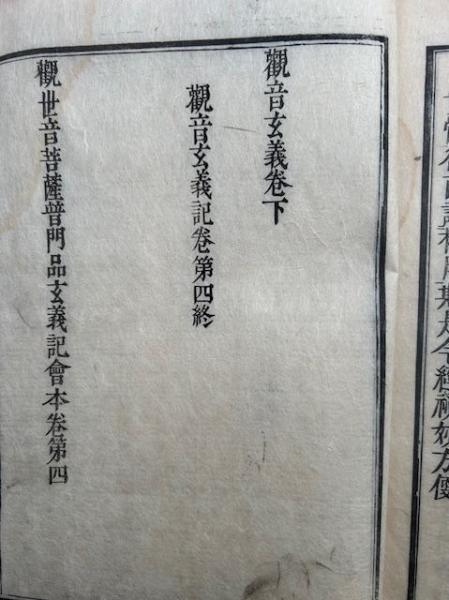 觀音玄義卷下
觀音玄義記卷第四終
觀世音菩薩普門品玄義記會本卷第四